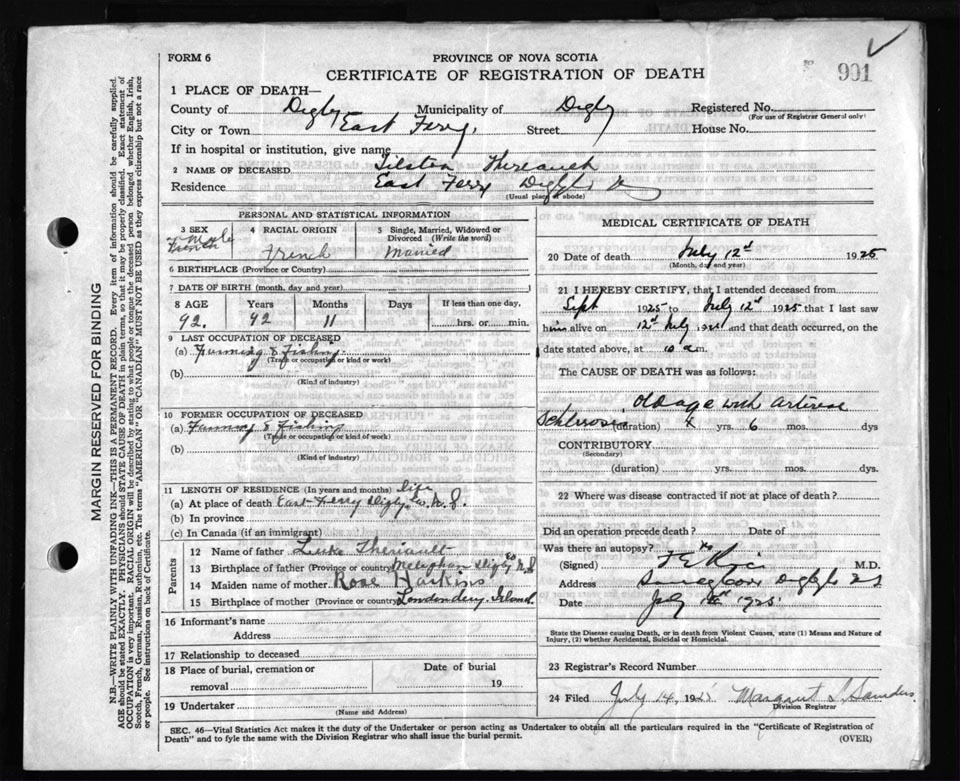 FORM 6
PROVINCE OF NOVA SCOTIA
CERTIFICATE OF REGISTRATION OF DEATH
991
1 PLACE OF DEATH—
County of Digby Municipality of Digby Registered No.
(For use of Registrar General only)
City or Town East Ferry, Street House No.
If in hospital or institution, give name
2 NAME OF DECEASED
Residence East Ferry Digby
(Usual place of abode)
PERSONAL AND STATISTICAL INFORMATION
3 SEX Male
French
4 RACIAL ORIGIN
French
5 Single, Married, Widowed or Divorced (Write the word)
Married
6 BIRTHPLACE (Province or Country)
7 DATE OF BIRTH (month, day and year)
8 AGE Years Months Days If less than one day,
92. 92 11 hrs. or min.
9 LAST OCCUPATION OF DECEASED
(a) Farming & Fishing
(Trade or occupation or kind of work)
(b)
(Kind of industry)
10 FORMER OCCUPATION OF DECEASED
(a) Farming & Fishing
(Trade or occupation or kind of work)
(b)
(Kind of industry)
11 LENGTH OF RESIDENCE (In years and months) life
(a) At place of death East Ferry Digby Co. N.S.
(b) In province
(c) In Canada (if an immigrant)
Parents
12 Name of father Luke Theriault
13 Birthplace of father (Province or country) Meteghan Digby Co N.S
14 Maiden name of mother Rose Haskins
15 Birthplace of mother (Province or country) Londonderry, Ireland
16 Informant's name
Address
17 Relationship to deceased
18 Place of burial, cremation or removal
Date of burial
19
19 Undertaker
(Name and Address)
MEDICAL CERTIFICATE OF DEATH
20 Date of death July 12th 1925
(Month, day and year)
21 I HEREBY CERTIFY, that I attended deceased from
Sept 1925 to July 12th 1925 that I last saw
him alive on 12th July 192 and that death occurred, on the
date stated above, at 10 a m.
The CAUSE OF DEATH was as follows:
old age with
(duration) yrs. 6 mos. dys
CONTRIBUTORY
(Secondary)
(duration) yrs. mos. dys.
22 Where was disease contracted if not at place of death?
Did an operation precede death? Date of
Was there an autopsy? No
(Signed) M.D.
Address Digby
Date July 1925
State the Disease causing Death, or in death from Violent Causes, state (1) Means and Nature of
Injury, (2) whether Accidental, Suicidal or Homicidal.
23 Registrar's Record Number
24 Filed July 14, 1925 Margaret S. Saunders
Division Registrar
SEC. 46—Vital Statistics Act makes it the duty of the Undertaker or person acting as Undertaker to obtain all the particulars required in the "Certificate of Registration of
Death" and to fyle the same with the Division Registrar who shall issue the burial permit.
(OVER)
MARGIN RESERVED FOR BINDING
N.B.—WRITE PLAINLY WITH UNFADING INK—THIS IS A PERMANENT RECORD. Every item of information should be carefully supplied.
AGE should be stated EXACTLY. PHYSICIANS should STATE CAUSE OF DEATH in plain terms, so that it may be properly classified. Exact statement of
OCCUPATION is very important. RACIAL ORIGIN will be described by stating to what people or tongue the deceased person belonged whether English, Irish,
Scotch, French, German, Russian, Ruthenian, etc. The terms "AMERICAN" or "CANADIAN" MUST NOT BE USED as they express citizenship but not a race
or people. See instructions on back of Certificate.